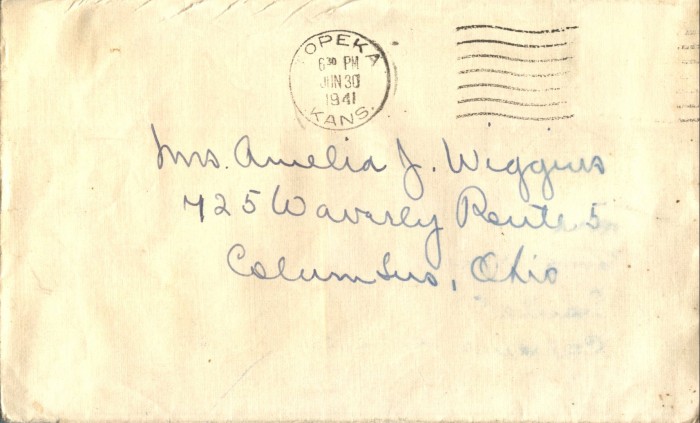 TOPEKA
6 30 PM
JUN 30
1941
KANS.
Mrs. Amelia J. Wiggins
725 Waverly Route 5
Columbus, Ohio